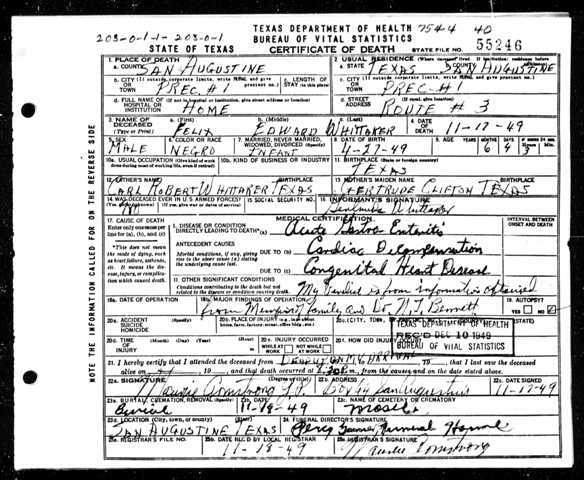 TEXAS DEPARTMENT OF HEALTH 7544 40
203-0-1-1-203-0-1 BUREAU OF VITAL STATISTICS
STATE OF TEXAS CERTIFICATE OF DEATH STATE FILE NO. 55246
1. PLACE OF DEATH 2. USUAL RESIDENCE (Where deceased lived. If institution: residence before admission)
a. COUNTY SAN AUGUSTINE a. STATE TEXAS b. COUNTY SAN AUGUSTINE
b. CITY (If outside corporate limits, write RURAL and give precinct no.) OR TOWN PREC. #1 c. LENGTH OF STAY (in this place) c. CITY (If outside corporate limits, write RURAL and give precinct no.) OR TOWN PREC-#1
d. FULL NAME OF (If not in hospital or institution, give street address or location) HOSPITAL OR INSTITUTION HOME d. STREET ADDRESS (If rural, give location) ROUTE # 3
3. NAME OF DECEASED (Type or Print) a. (First) FELIX b. (Middle) EDWARD c. (Last) WHITTAKER 4. DATE OF DEATH 11-17-49
5. SEX MALE 6. COLOR OR RACE NEGRO 7. MARRIED, NEVER MARRIED, WIDOWED, DIVORCED (Specify) INFANT 8. DATE OF BIRTH 4-27-49 9. AGE YEARS MONTHS 6
10a. USUAL OCCUPATION (Give kind of work done during most of working life, even if retired) 10b. KIND OF BUSINESS OR INDUSTRY 11. BIRTHPLACE (State or foreign country) TEXAS
12. FATHER'S NAME CARL ROBERT WHITTAKER TEXAS 13. MOTHER'S MAIDEN NAME GERTRUDE CLIFTON TEXAS
14. WAS DECEASED EVER IN U.S. ARMED FORCES? (Yes, no, unknown) (If yes, give war or dates of service) NO 15. SOCIAL SECURITY NO. 16. INFORMANT'S SIGNATURE Whittaker
17. CAUSE OF DEATH MEDICAL CERTIFICATION INTERVAL BETWEEN ONSET AND DEATH
Enter only one cause per line for (a), (b), and (c) I. DISEASE OR CONDITION DIRECTLY LEADING TO DEATH (a) Acute Gastro Enteritis
*This does not mean the mode of dying, such as heart failure, asthenia, etc. It means the disease, injury, or complication which caused death. ANTECEDENT CAUSES Morbid conditions, if any, giving rise to the above cause (a) stating the underlying cause last. DUE TO (b) Cardiac Decompensation
DUE TO (c) Congenital Heart Disease
II. OTHER SIGNIFICANT CONDITIONS Conditions contributing to the death but not related to the disease or condition causing death. My verdict is from information obtained
18a. DATE OF OPERATION 18b. MAJOR FINDINGS OF OPERATION from Members of Family and Dr. N.J. Bennett 19. AUTOPSY? YES NO
20a. ACCIDENT SUICIDE HOMICIDE (Specify) 20b. PLACE OF INJURY (e.g., in or about home, farm, factory, street, office bldg., etc.) 20c. (CITY, TOWN,
TEXAS DEPARTMENT OF HEALTH
REC'D DEC 10 1949
BUREAU OF VITAL STATISTICS
20d. TIME OF INJURY (Month) (Day) (Year) (Hour) 20e. INJURY OCCURRED WHILE AT WORK NOT WHILE AT WORK 20f. HOW DID INJURY OCCUR?
21. I hereby certify that I attended the deceased from DEAD ON MY ARRIVAL 19 , that I last saw the deceased
alive on 19 , and that death occurred at m., from the causes and on the date stated above.
22a. SIGNATURE Armstrong J.P. (Degree or title) 22b. ADDRESS Box 64 San Augustine 22c. DATE SIGNED 11-17-49
23a. BURIAL, CREMATION, REMOVAL (Specify) Burial 23b. DATE 11-18-49 23c. NAME OF CEMETERY OR CREMATORY
23d. LOCATION (City, town, or county) (State) SAN AUGUSTINE TEXAS 24. FUNERAL DIRECTOR'S SIGNATURE Funeral Home
25a. REGISTRAR'S FILE NO. 25b. DATE REC'D BY LOCAL REGISTRAR 11-18-49 25c. REGISTRAR'S SIGNATURE Armstrong
NOTE THE INFORMATION CALLED FOR ON THE REVERSE SIDE